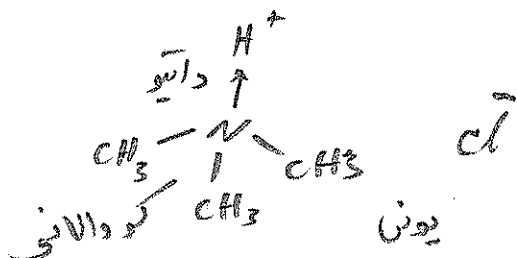 H+
داتیو
N
CH3 CH3 Cl-
CH3
کووالانی یونی